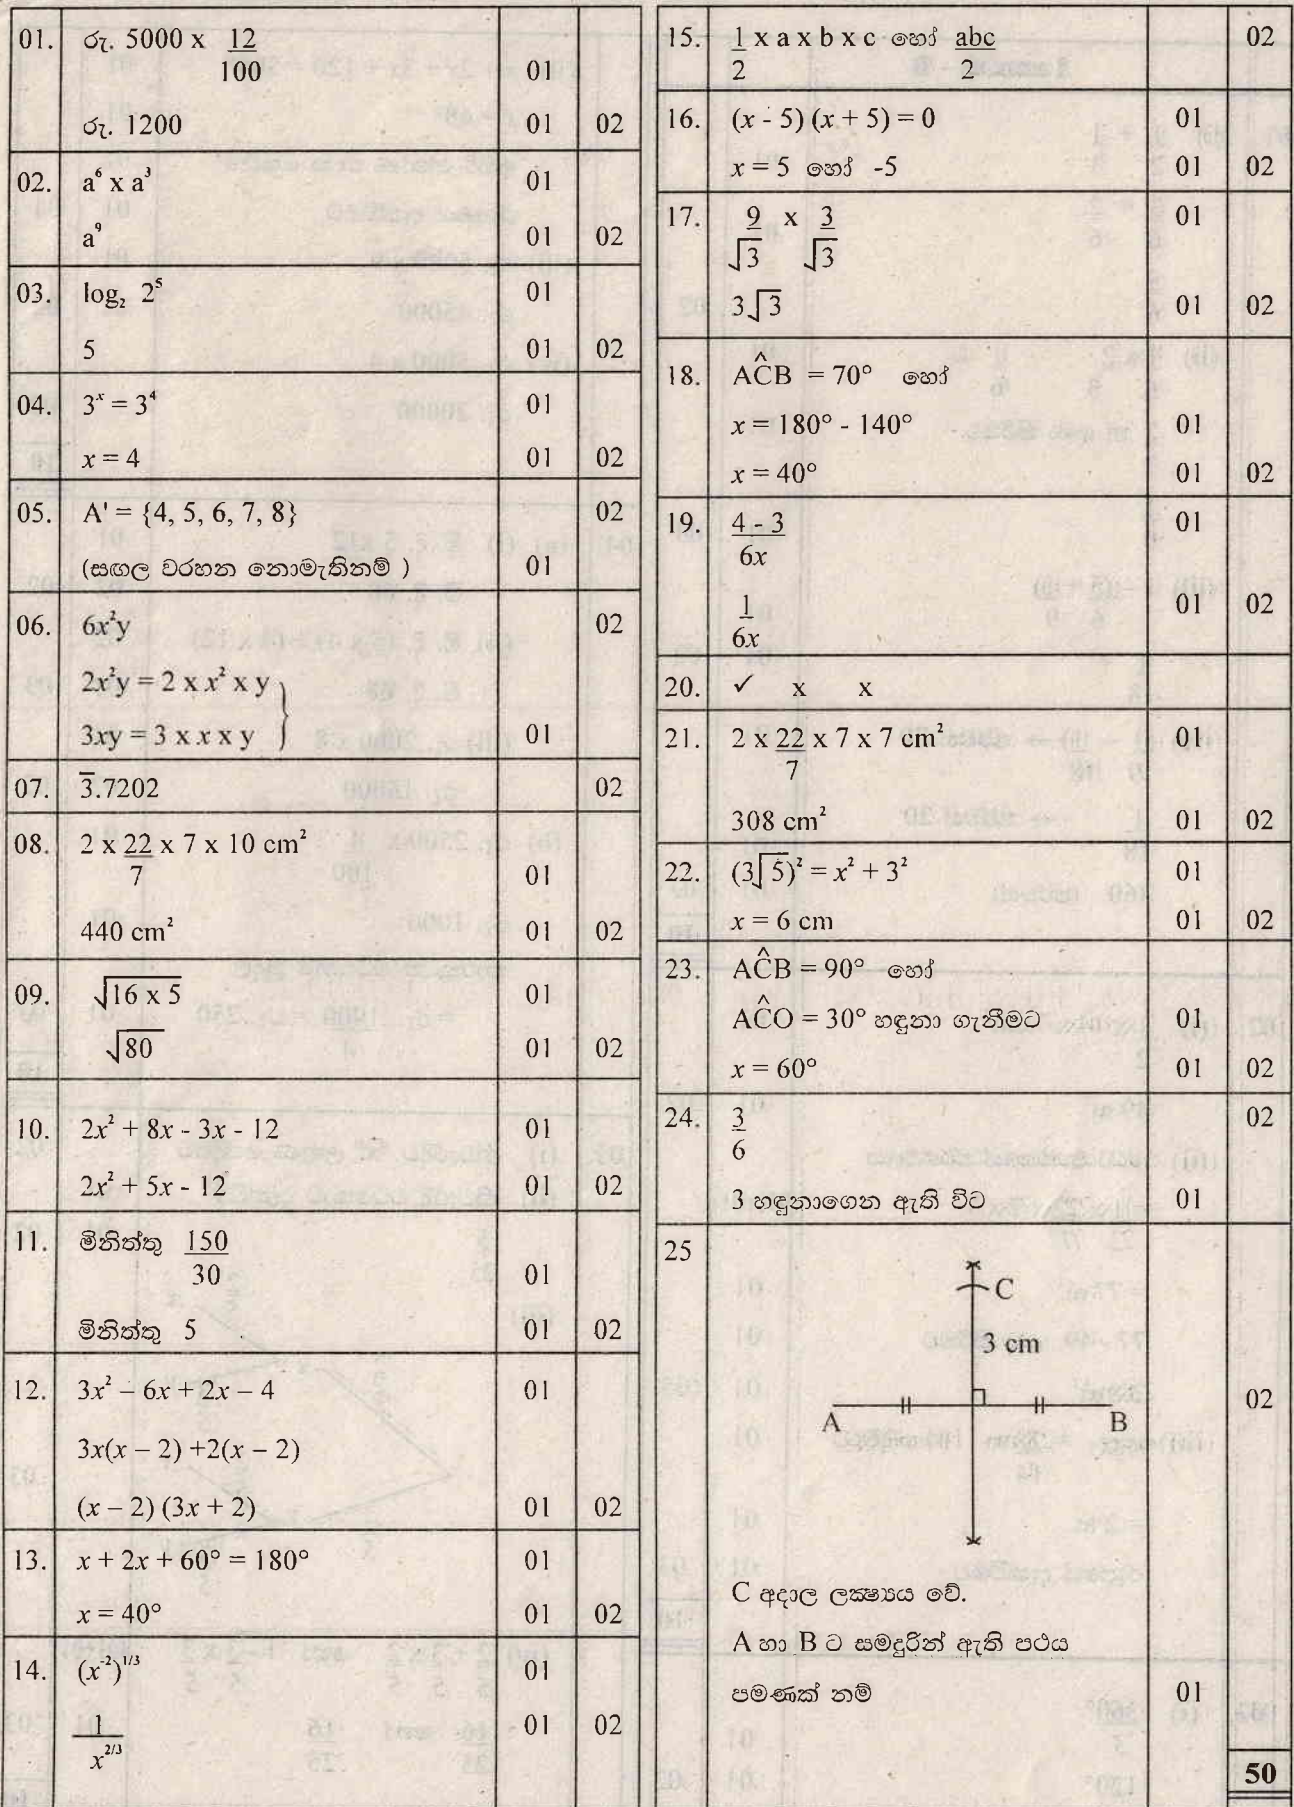 01. රු. 5000 x 12/100 01
රු. 1200 01 02
02. a⁶ x a³ 01
a⁹ 01 02
03. log₂ 2⁵ 01
5 01 02
04. 3ˣ = 3⁴ 01
x = 4 01 02
05. A' = {4, 5, 6, 7, 8} 02
(සඟල වරහන නොමැතිනම් ) 01
06. 6x²y 02
2x²y = 2 x x² x y
3xy = 3 x x x y } 01
07. 3̅.7202 02
08. 2 x 22/7 x 7 x 10 cm² 01
440 cm² 01 02
09. √(16 x 5) 01
√80 01 02
10. 2x² + 8x - 3x - 12 01
2x² + 5x - 12 01 02
11. මිනිත්තු 150/30 01
මිනිත්තු 5 01 02
12. 3x² – 6x + 2x – 4 01
3x(x – 2) +2(x – 2)
(x – 2) (3x + 2) 01 02
13. x + 2x + 60° = 180° 01
x = 40° 01 02
14. (x⁻²)^1/3 01
1/x^2/3 01 02
15. 1/2 x a x b x c හෝ abc/2 02
16. (x - 5) (x + 5) = 0 01
x = 5 හෝ -5 01 02
17. 9/√3 x 3/√3 01
3√3 01 02
18. AĈB = 70° හෝ
x = 180° - 140° 01
x = 40° 01 02
19. 4 - 3/6x 01
1/6x 01 02
20. ✓ x x
21. 2 x 22/7 x 7 x 7 cm² 01
308 cm² 01 02
22. (3√5)² = x² + 3² 01
x = 6 cm 01 02
23. AĈB = 90° හෝ
AĈO = 30° හඳුනා ගැනීමට 01
x = 60° 01 02
24. 3/6 02
3 හඳුනාගෙන ඇති විට 01
25
C
3 cm
A B 02
C අදාල ලක්‍ෂ්‍යය වේ.
A හා B ට සමදුරින් ඇති පථය
පමණක් නම් 01
50